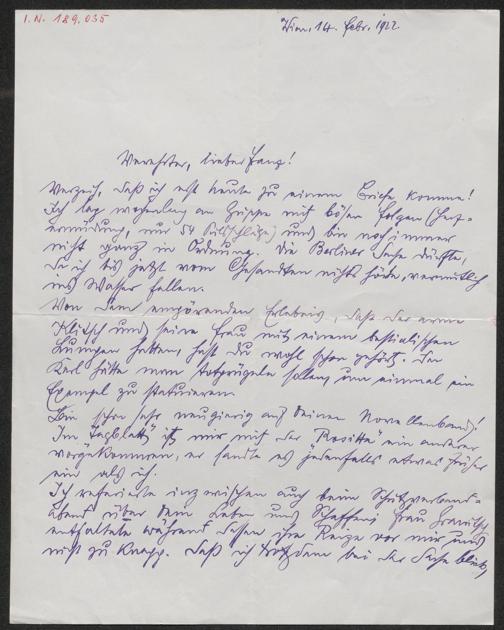 I.N. 189.035
Wien, 14. Febr. 1922
Verehrter, lieber Franz!
Verzeih, daß ich erst heute zu einem Briefe komme!
Ich lag wochenlang an Grippe mit bösen Folgen (Herz-
ermüdung, nur 54 Pulsschläge) und bin noch immer
nicht ganz in Ordnung. Die Berliner Sache dürfte,
da ich bis jetzt vom Gesandten nichts hörte, vermutlich
ins Wasser fallen.
Von dem empörenden Erlebnis, daß der arme
und seine Frau mit einem bestialischen
Lumpen hatten, hast Du wohl schon gehört. Den
Kerl hätte man totprügeln sollen, um einmal ein
Exempel zu statuieren.
Bin schon sehr neugierig auf Deinen Novellenband!
Im "Tagblatt" ist mir mit der "Rositta" ein anderer
vorgekommen, er sandte es jedenfalls etwas früher
ein als ich.
Ich referierte inzwischen auch beim Schutzverband-
abend über Dein Leben und Schaffen; Frau
entfaltete während dessen ihre Reize vor mir und
nicht zu knapp. Daß ich trotzdem bei der Sache blieb,